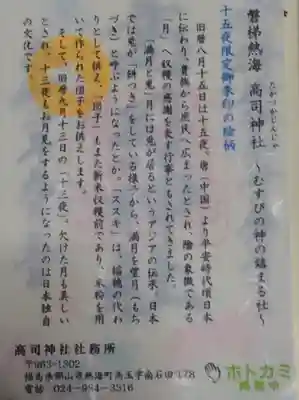 たかつかじんじゃ
磐梯熱海 高司神社 ～むすびの神の鎮まる社～
十五夜限定御朱印の絵柄
旧暦八月十五日は十五夜。唐(中国)より平安時代頃日本
に伝わり、貴族から庶民へ広まったとされ、陰の象徴である
「月」へ収穫の感謝を表す行事ともされてきました。
「満月と兎」月には兎が居るというアジアの伝承、日本
では兎が「餅つき」をしている様子から、満月を望月(もち
づき)と呼ぶようになったとか。「ススキ」は、稲穂の代わ
りとして供え、「団子」もまた新米収穫前であり、米粉を用
いて作られた団子をお供えします。
そして、旧暦九月十三日の「十三夜」。欠けた月も美しい
とされ、十三夜もお月見をするようになったのは日本独自
の文化です。
高司神社社務所
〒963-1302
福島県郡山市熱海町高玉字南石田178
電話 024-984-3316
ホトカミ
掲載中